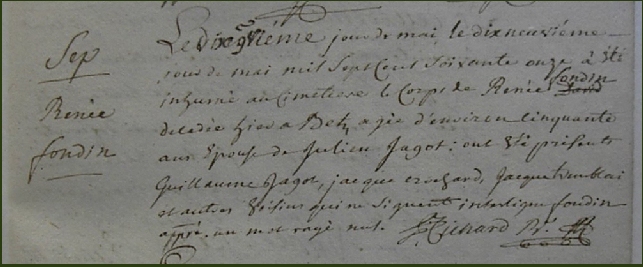 Sep
Renée
fondin
Le jour de mai, le dixneuviéme
jour de mai mil Sept Cent Soixante onze à été
inhumé au Cimetiere le Corps de Renée fondin
decedée hier a agée d'environ Cinquante
ans Epouse de Julien Jagot : ont été présents
Guillaume Jagot, jacque Jacque tremblai
et autres Voisins qui ne Signent interligne fondin
appr. un mot rayé nul. Richard